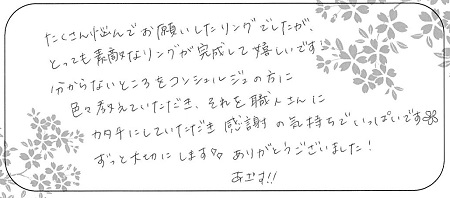 たくさん悩んでお願いしたリングでしたが、
とっても素敵なリングが完成して嬉しいです!
分からないところをコンシェルジュの方に
色々教えていただき、それを職人さんに
カタチにしていただき感謝の気持ちでいっぱいです
ずっと大切にします ありがとうございました!